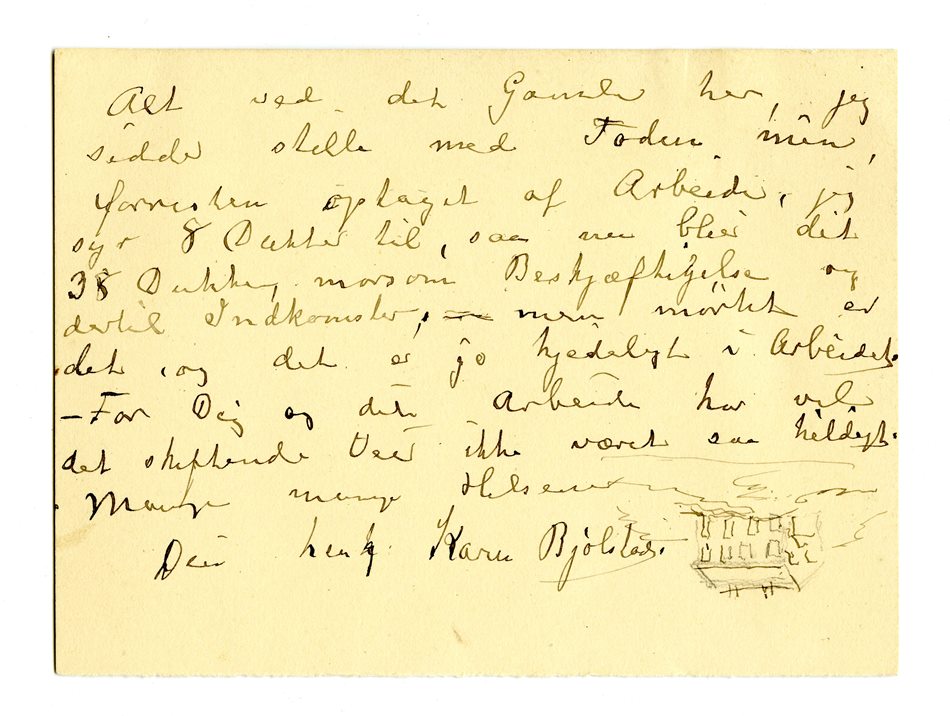 Alt ved det Gamle her, jeg
sidder stille med Foden min,
forresten optaget af Arbeide, jeg
syr 8 Dukker til, saa nu blir det
38 Dukker, morsom Beskjæftigelse og
dertil Indkomster, men mørkt er
det, og det er jo kjedeligt i Arbeidet.
– For Dig og dit Arbeide har vel
det skiftende Veir ikke været saa heldigt.
Mange mange Hilsener
Din heng Karen Bjølstad.